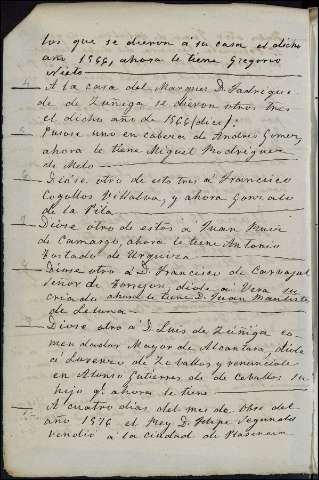 los que se dieron á su casa el dicho
año 1566, ahora le tiene Gregorio
Nieto
A la casa del Marques D. Fadrique
de Zuñiga se dieron otros tres
el dicho año de 1566 (diez);
Pusose uno en cabeza de Andres Gomez,
ahora le tiene Miguel Rodriguez
de Melo
Diose otro de estos tres á Francisco
Cogollos Villalva, y ahora Gonzalo
de la Pila
Diose otro de estos á Juan Ruiz
de Camargo, ahora le tiene Antonio
Hurtado de Urquiza
Diose otro á D. Francisco de Carvajal
Señor de Torrejon, diole á Vera su
criado ahora le tiene D. Juan Manuel
de Deluna
Diose otro á D. Luis de Zúñiga co
mendador Mayor de Alcantara, diole
á Lorenzo de Zeballos y renunciole
en Alonso Gutierres de Ceballos su
hijo q. ahora le tiene
A cuatro dias del mes de Obre del
año 1576 el Rey D. Felipe Segundo
vendió á la ciudad de Plasencia